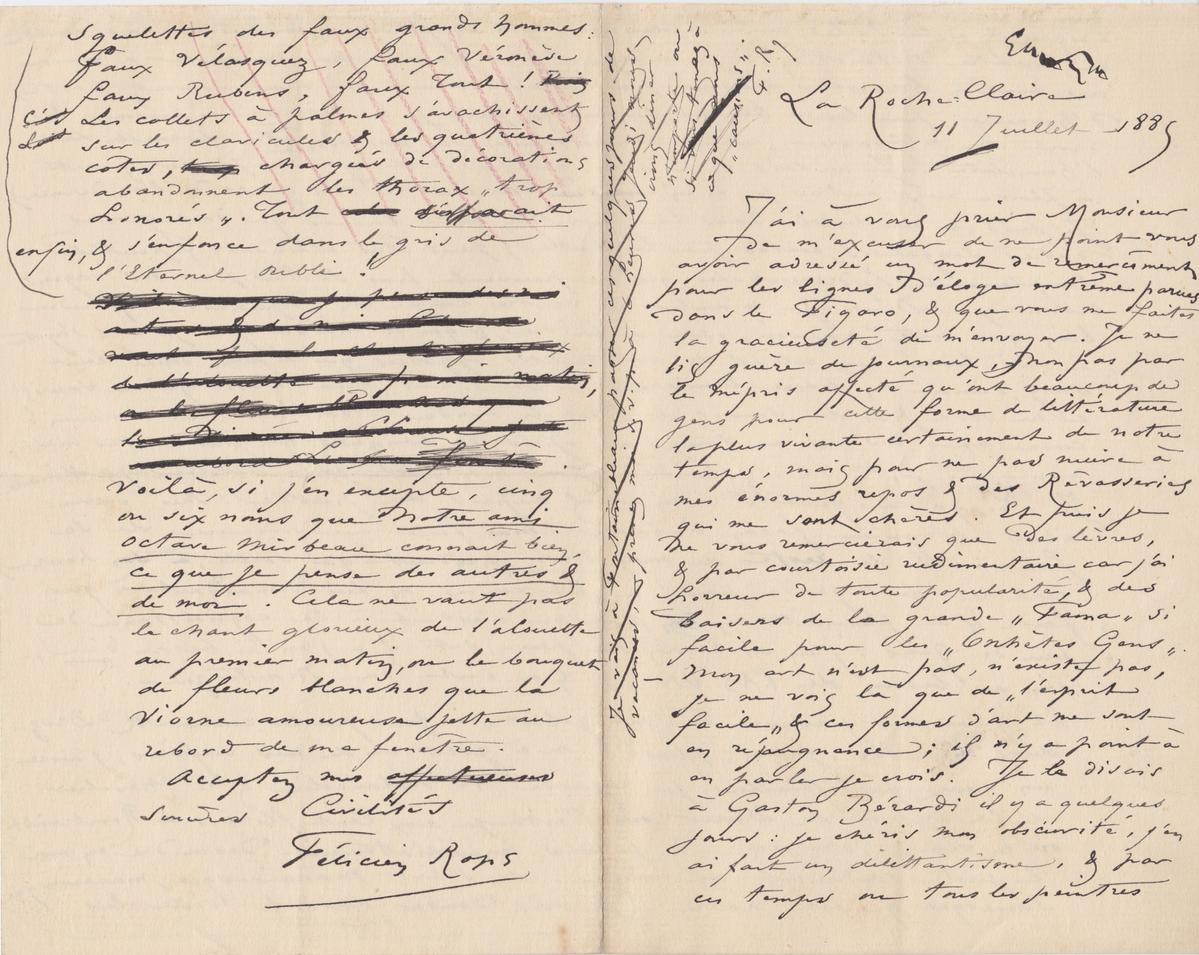 La Roche-Claire
11 Juillet 1885
J'ai à vous prier Monsieur
de m'excuser de ne point vous
avoir adressé un mot de remerciement
pour les lignes d'éloge extrême parues
dans le Figaro, & que vous me faites
la gracieuseté de m'envoyer. Je ne
lis guère de journaux, non pas par
le mépris affecté qu'ont beaucoup de
gens pour cette forme de littérature
la plus vivante certainement de notre
temps, mais pour ne pas nuire à
mes énormes repos & des Rêvasseries
qui me sont chères. Et puis je
ne vous remercierais que des lèvres,
& par courtoisie rudimentaire car j'ai
horreur de toute popularité, & des
baisers de la grande „Fama" si
facile pour les „Enhêtes Gens".
Mon art n'est pas, n'existe pas,
je ne vois là que de „l'esprit
facile" & ces formes d'art me sont
en répugnance ; il n'y a point à
en parler je crois. Je le disais
à Gaston Bérardi il y a quelques
jours : je chéris mon obscurité, j'en
ai fait un dilettantisme, & par
ces temps où tous les peintres
squelettes des faux grands hommes :
Faux Vélasquez, faux Véronèse
faux Rubens, faux Tout !
Les collets à palmes s'avachissent
sur les clavicules & les quatrièmes
côtes, chargés de décorations
abandonnent les thorax „trop
honorés". Tout disparait
enfin, & s'enfonce dans le gris de
l'Eternel oubli !
Voilà, si j'en excepte, cinq
ou six noms que notre ami
Octave Mirbeau connait bien,
ce que je pense des autres &
de moi. Cela ne vaut pas
le chant glorieux de l'alouette
au premier matin, ou le bouquet
de fleurs blanches que la
viorne amoureuse jette au
rebord de ma fenêtre.
Acceptez mes affectueuses
sincères Civilités
Félicien Rops
Je vais à passer ces quelques jours de
vacances,
irons dîner
n'importe où
ce que nous
„causions"
F. R.